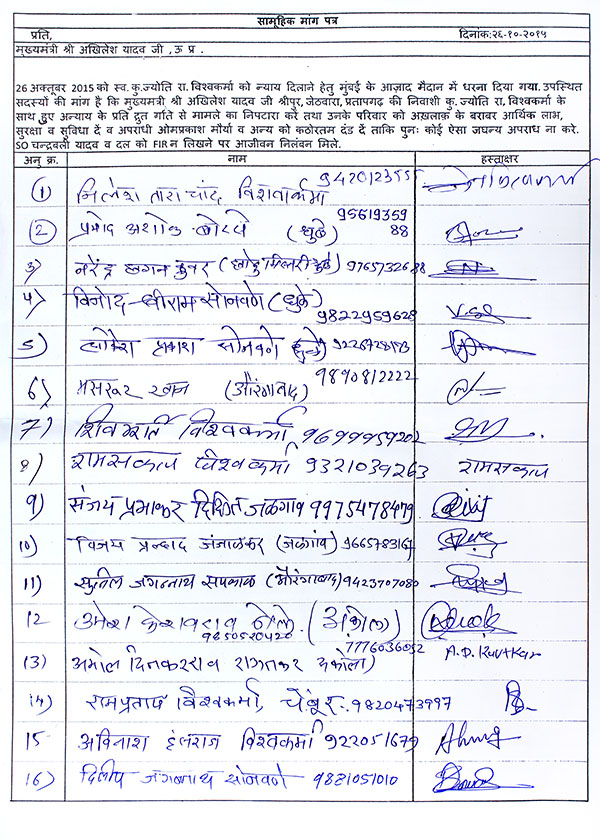 सामूहिक मांग पत्र
प्रति, दिनांक:२६-१०-२०१५
मुख्यमंत्री श्री अखिलेश यादव जी ,ऊ प्र .
26 अक्तूबर 2015 को स्व. कु.ज्योति रा. विश्वकर्मा को न्याय दिलाने हेतु मुंबई के आज़ाद मैदान में धरना दिया गया. उपस्थित
सदस्यों की मांग है कि मुख्यमंत्री श्री अखिलेश यादव जी श्रीपुर, जेठवारा, प्रतापगढ़ की निवाशी कु. ज्योति रा, विश्वकर्मा के
साथ हुए अन्याय के प्रति द्रुत गति से मामले का निपटारा करें तथा उनके परिवार को अख़लाक़ के बराबर आर्थिक लाभ,
सुरक्षा व सुविधा दें व अपराधी ओमप्रकाश मौर्या व अन्य को कठोरतम दंड दें ताकि पुनः कोई ऐसा जघन्य अपराध ना करे.
SO चन्द्रबली यादव व दल को FIR न लिखने पर आजीवन निलंबन मिले.
अनु क्र. नाम हस्ताक्षर
1 निलेश ताराचांद विशवाकर्मा 9420123555
2 प्रमोद अशोक (धुळे) 95619359
88
3) नरेंद्र छगन कुवर 9765732688
4) विनोद श्रीराम सोनवणे (धुळे) 9822959628 V.S
5) प्रकाश सोनवणे
6) (औरंगाबाद) 9890812222
7) शिवमूर्ति विश्वकर्मा, 9699959202
8) रामसकल विश्वकर्मा 9321039263 रामसकल
9) संजय प्रभाकर दिक्षित जळगाव 9975478479 Dixit
10) विजय प्रल्हाद जंजाळकर (जळगांव) 9665783167
11) सुनिल जगन्नाथ सपकाळ (औरंगाबाद) 9423707080
12 उमेश केशवराव (अकोला)
9850520420
13) अमोल दिनकरराव राऊतकर अकोला) 7776036052 A.D. Rautkar
14) रामप्रताप विश्वकर्मा, चेंबूर. 9820473997
15 अविनाश हंसराज विश्वकर्मा 922051679
16) दिलीप जगन्नाथ सोनवणे 9881051010